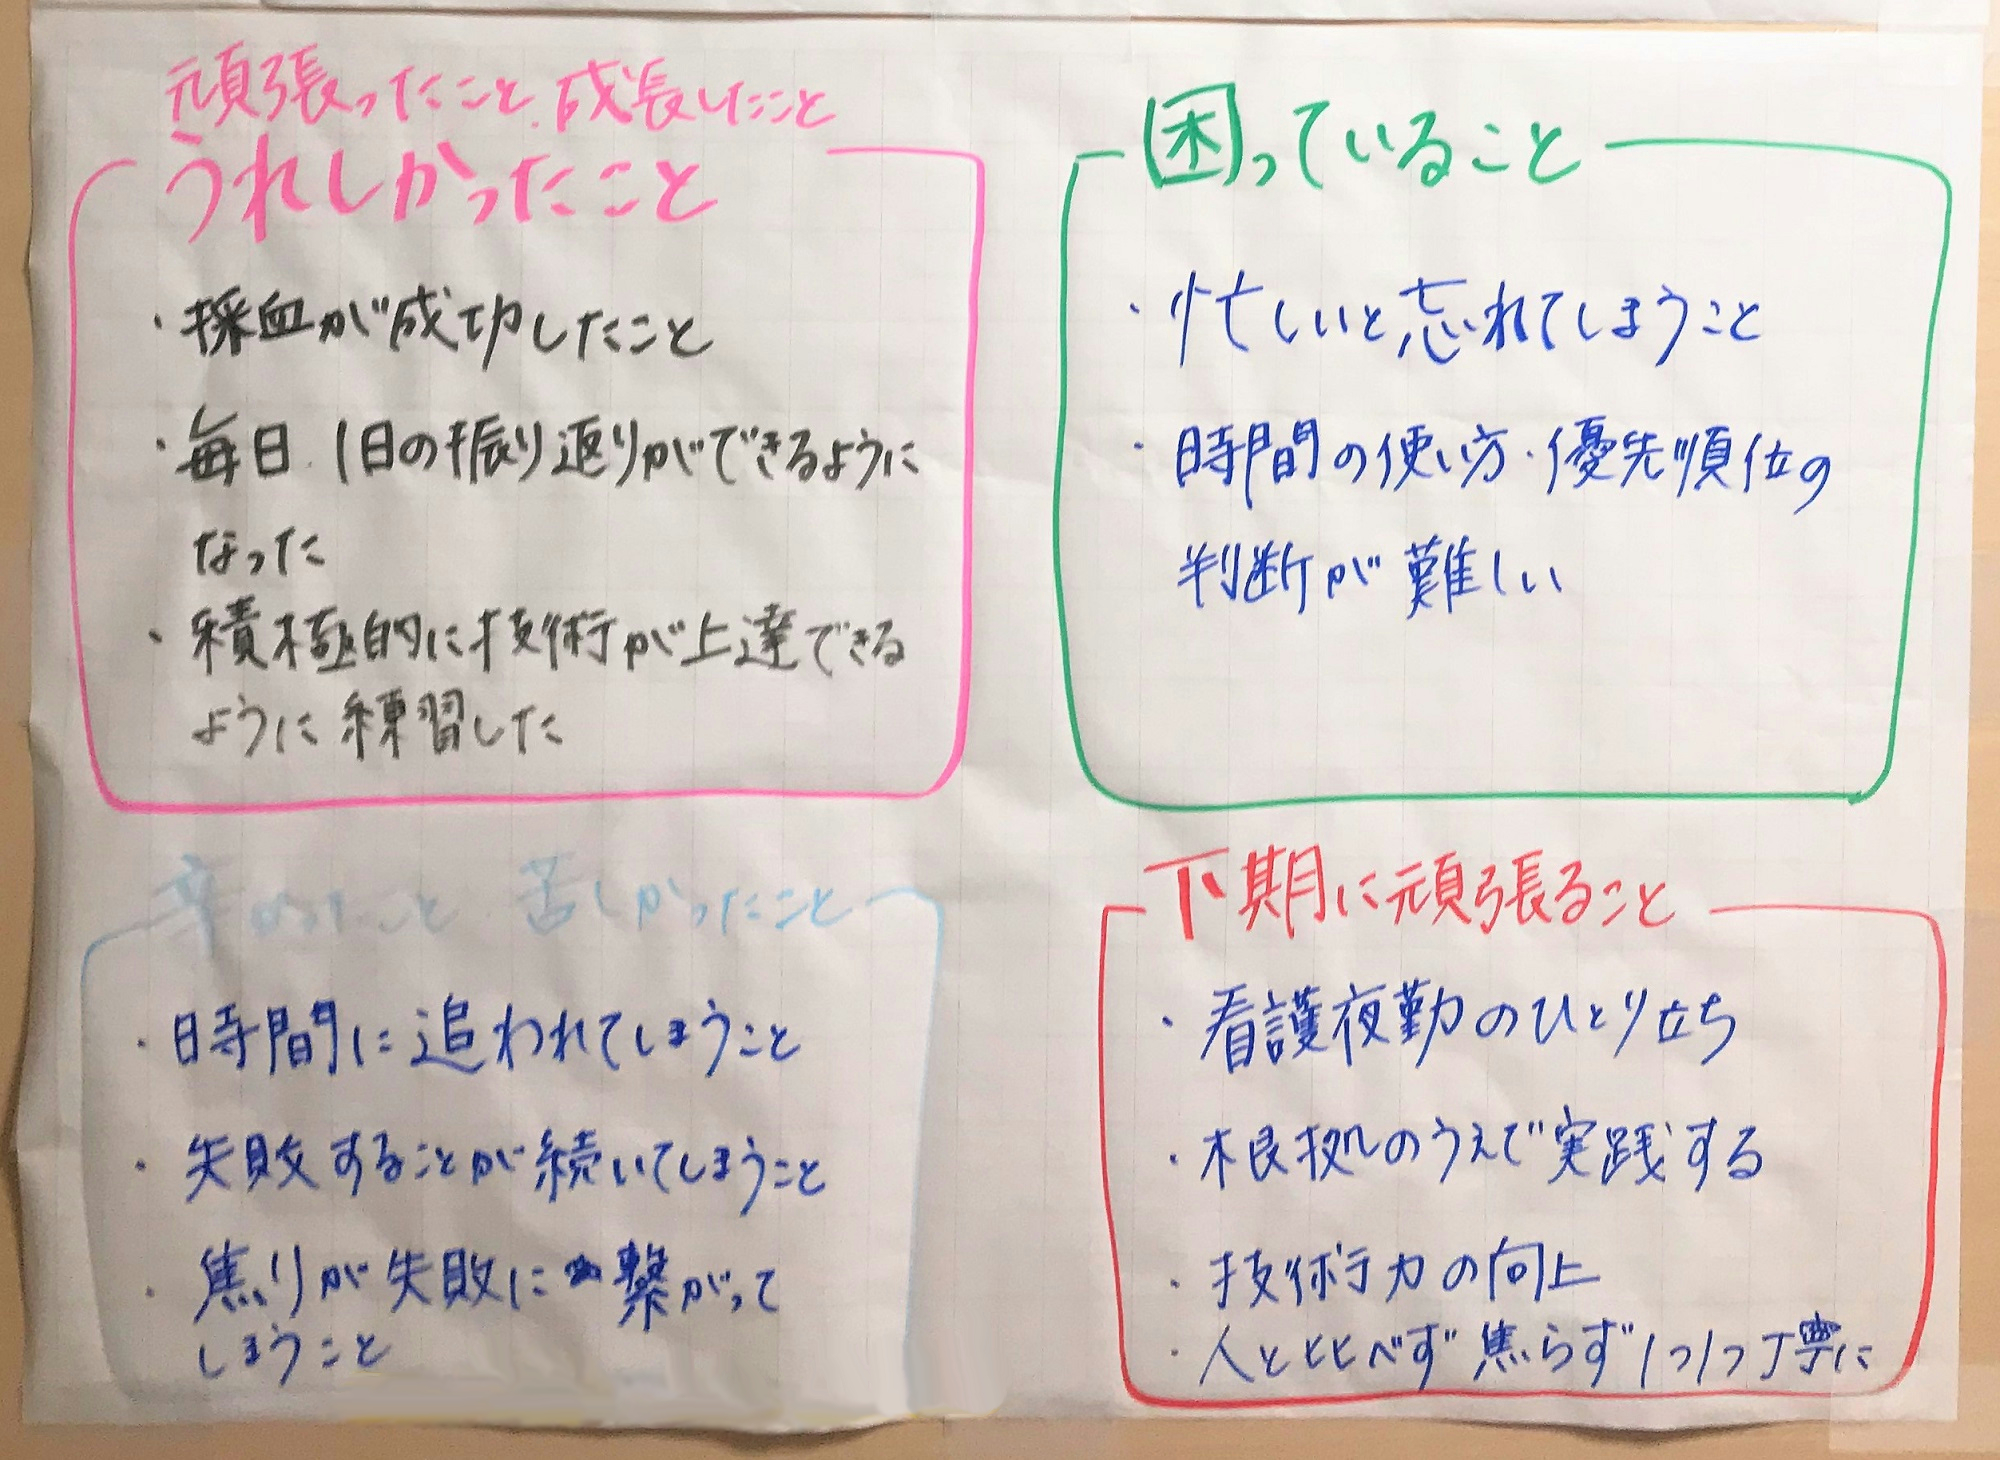 頑張ったこと.成長したこと
うれしかったこと
・採血が成功したこと
・毎日.1日の振り返りができるように
なった
・積極的に技術が上達できる
ように練習した
困っていること
・忙しいと忘れてしまうこと
・時間の使い方・優先順位の
判断が難しい
辛かったこと 苦しかったこと
・時間に追われてしまうこと
・失敗することが続いてしまうこと
・焦りが失敗に繋がって
しまうこと
下期に頑張ること
・看護夜勤のひとり立ち
・根拠のうえで実践する
・技術力の向上
・人と比べず焦らず1つ1つ丁寧に